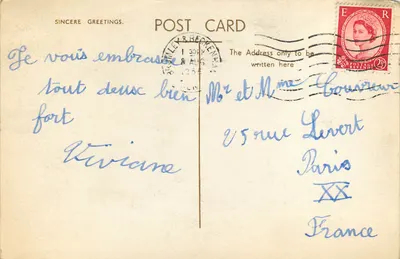 SINCERE GREETINGS.
POST CARD
The Address only to be
written here
E R
BROMLEY & BECKENHAM
Je vous embrasse
tout deux bien
fort
Viviane
Mr et Mme Couvreur
25 rue Levert
Paris
XX
France